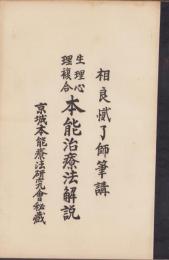 相良感了師筆講
生理心
理複合
本能治療法解説
京城本能療法研究會秘藏